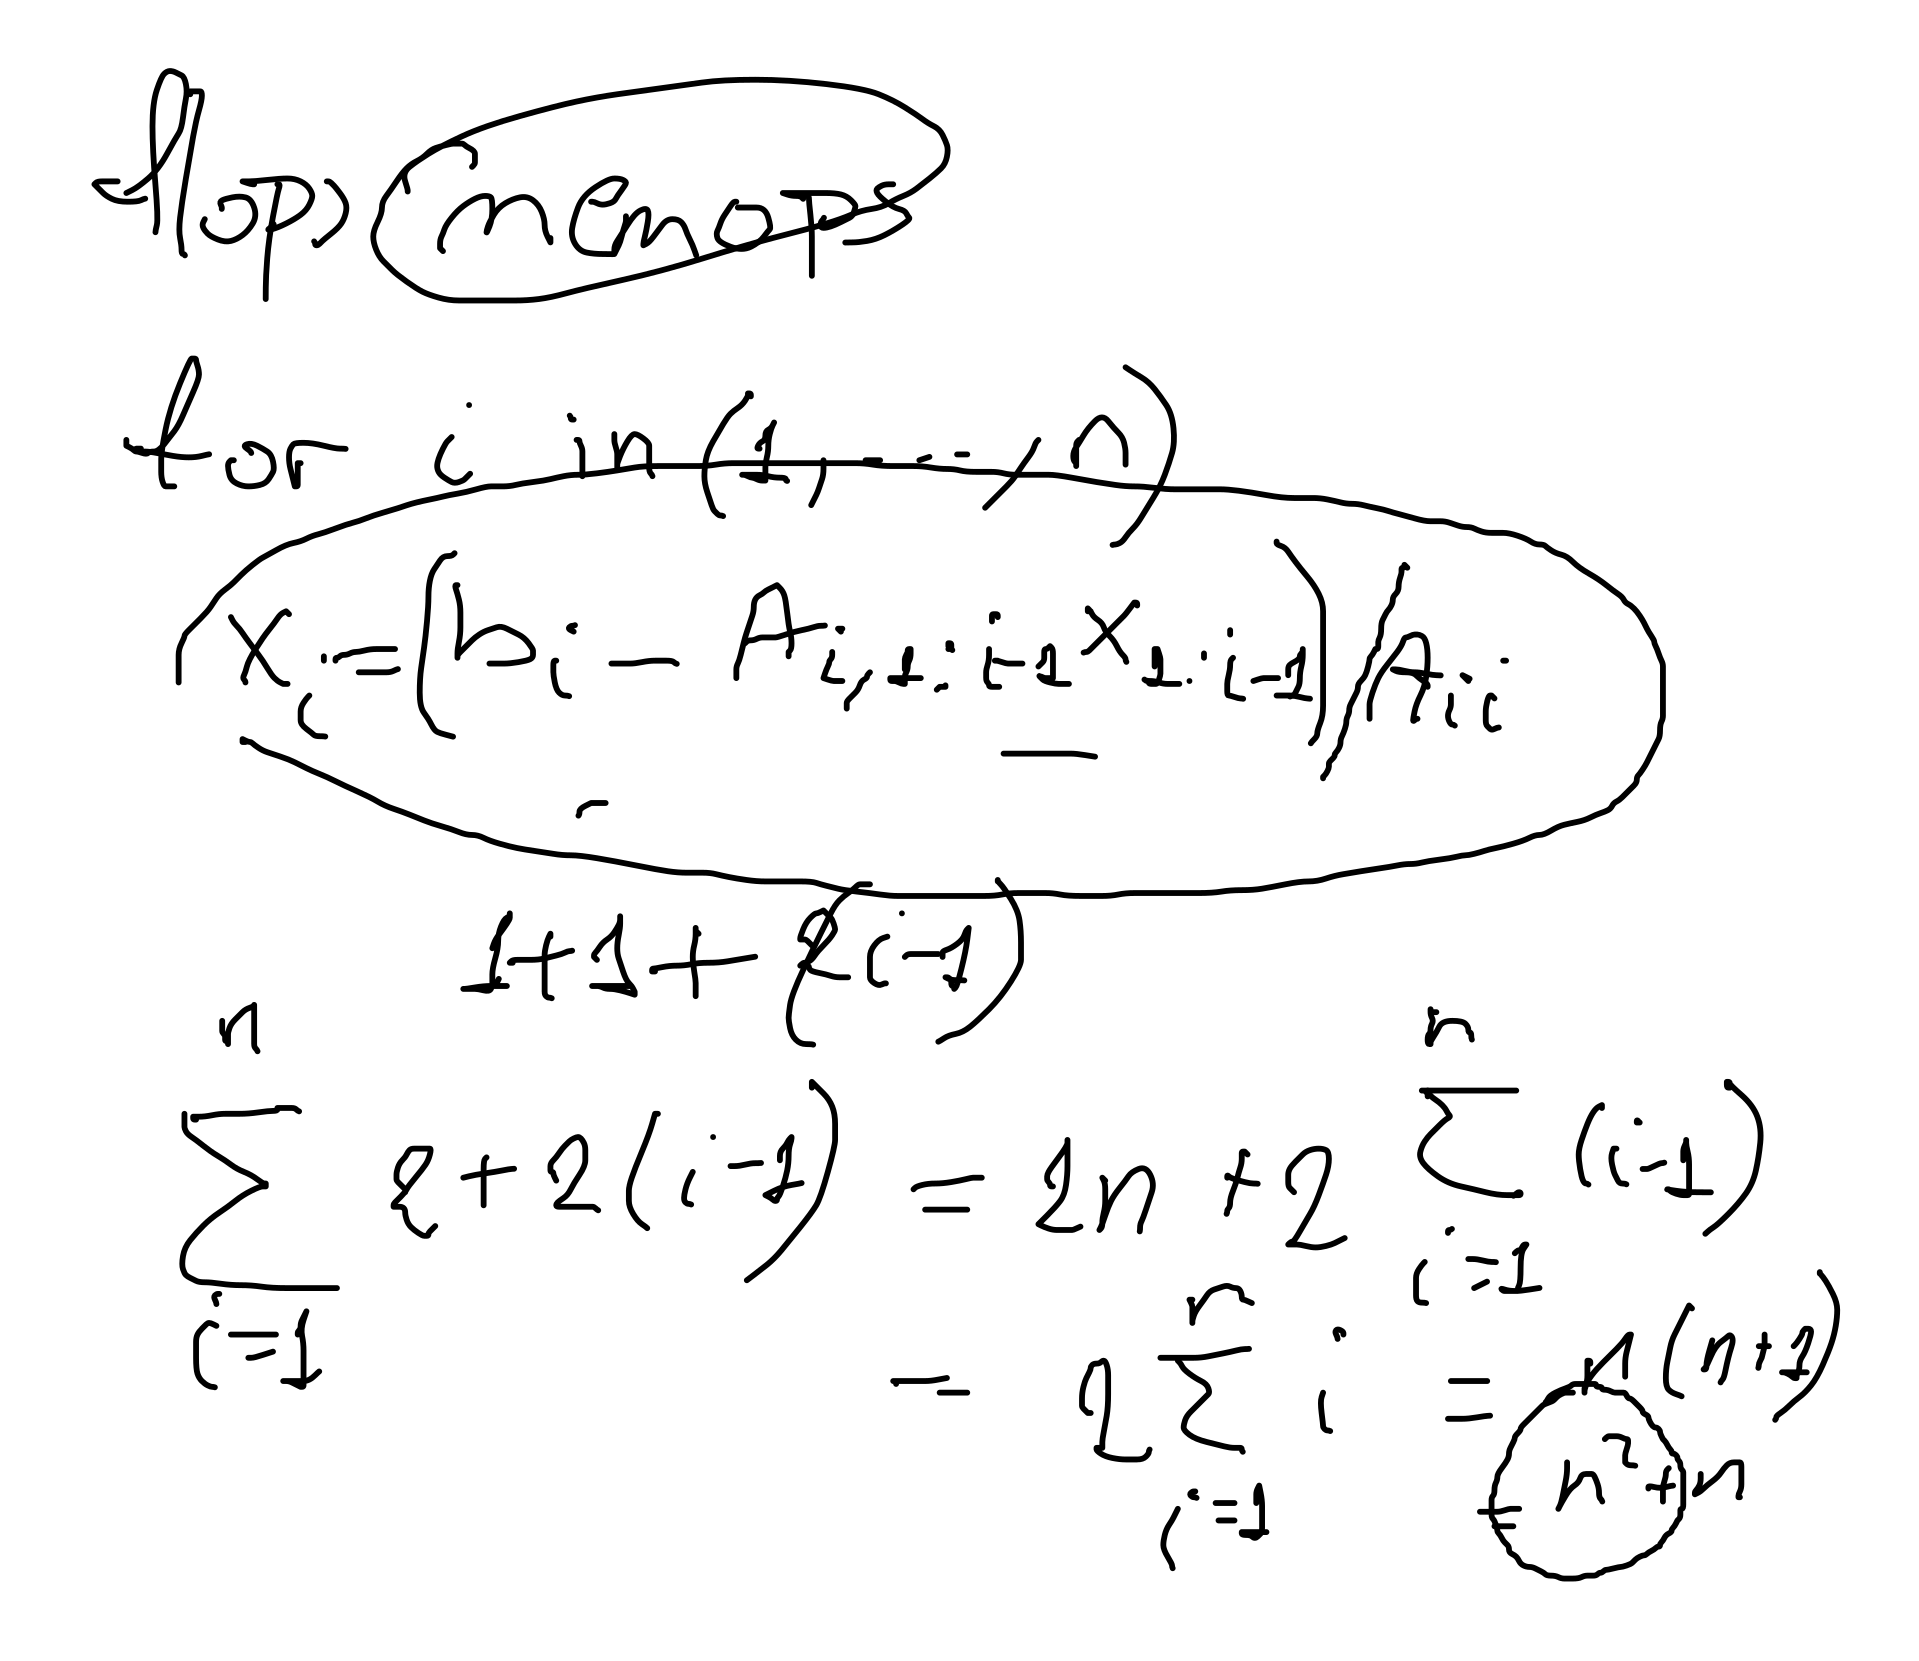 flops memops
for i in (1, -- , n)
x_i = (b_i - A_{i,1:i-1} x_{1:i-1}) / A_{ii}
1+1+(2i-1)
∑_{i=1}^{n} 2+2(i-1)) = 2n + 2 ∑_{i=1}^{n} (i-1))
= 2 ∑_{i=1}^{n} i = n(n+1)
= n² + n